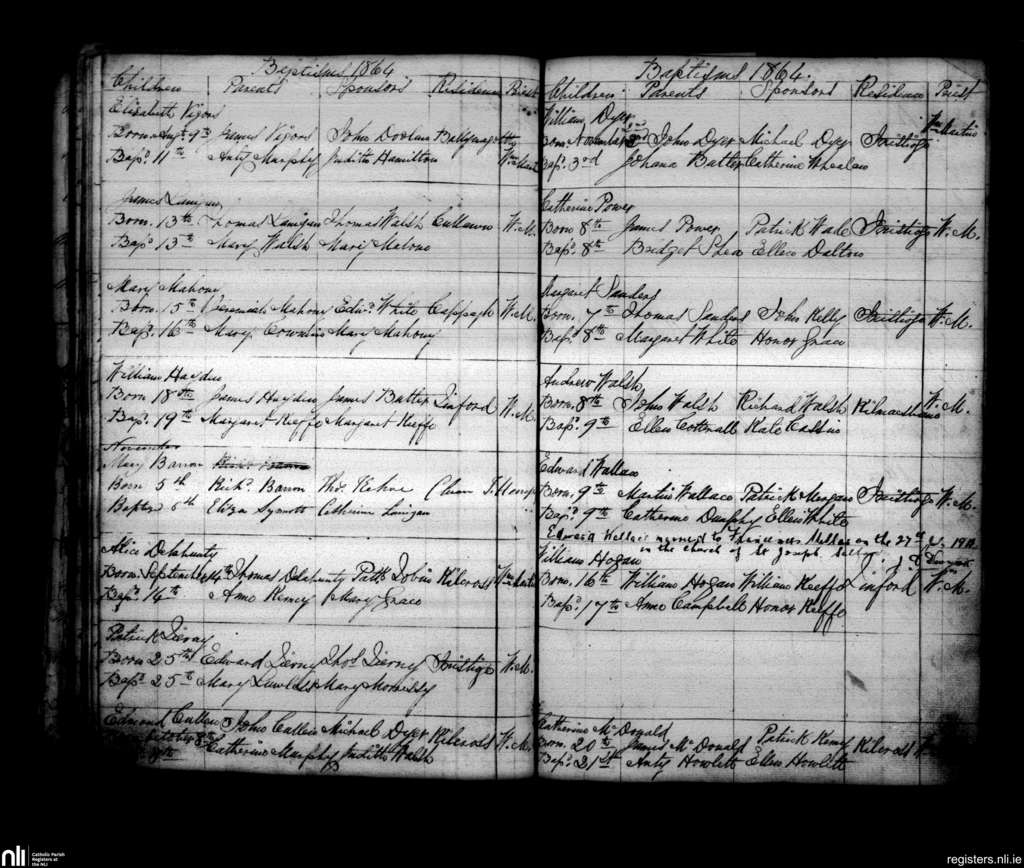 Baptisms 1864
Children Parents Sponsors Residence Priest
Elizabeth Vigors
Born Augt. 9th James Vigors John Doolan Ballynag
Bap. 11th Anty Murphy Judith Hamilton Wm. Mart
James Lanigan
Born. 13th Thomas Lanigan Thomas Walsh Cullawn W. M.
Bapd. 13th Mary Walsh Mary Malone
Mary Mahony
Born. 15th Jeremiah Mahony Edwd. White Cappagh W. M.
Bapd. 16th Mary Mary Mahony
William Hayden
Born 18th James Hayden James Butler Linford W. M.
Bapd. 19th Margaret Keeffe Margaret Keeffe
November
Mary Barron
Born 5th Richd. Barron Thos. Kehoe Cluen
Baptzd 6th Eliza Synnott Catherine Lanigan
Alice Delahunty
Born September 14th Thomas Delahunty Patk. Tobin Kilcross Wm. Martin
Bapd. 14th Anne Kenny Mary Grace
Patrick Tierny
Born 25th Edward Tierny Thos. Tierny Inistioge W. M.
Bapd. 25th Mary Lawless Mary Morrissy
Edmond Cullen John Cullen Michael Dyer Kilcross W. M.
October 8th
9th Catherine Murphy Judith Walsh
Baptisms 1864.
Children Parents Sponsors Residence Priest
William Dyer Wm. Martin
Born November 2nd John Dyer Michael Dyer Inistioge
Bapd. 3rd Johana Butler Catherine Whealan
Catherine Power
Born 8th James Power Patrick Wade Inistioge W. M.
Bapd. 8th Bridget Shea Ellen Dalton
Margaret Sanders
Born. 7th Thomas Sanders John Kelly Inistioge W. M.
Bapd. 8th Margaret White Honor Grace
Andrew Walsh
Born. 8th John Walsh Richard Walsh W. M.
Bapd. 9th Ellen Cottrall Kate
Edward Wallace
Born. 9th Martin Wallace Patrick Morgan Inistioge W. M.
Bapd. 9th Catherine Dunphy Ellen White
Edward Wallace married to on the 27th
in the church of St Joseph
William Hogan
Born. 16th William Hogan William Keeffe Linford W. M.
Bapd. 17th Anne Campbell Honor Keeffe
Catherine McDonald
Born. 20th James McDonald Patrick Kenny Kilcross
Bapd. 21st Anty Howlett Ellen Howlett
nli Catholic Parish
Registers at
the NLI
registers.nli.ie